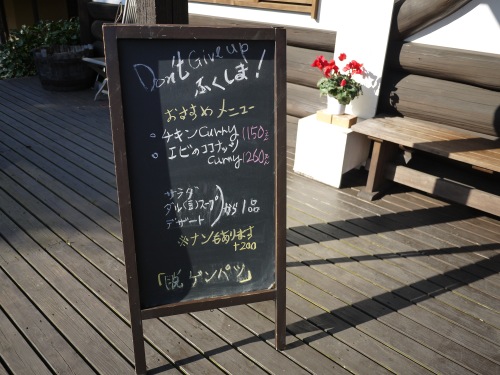 Don't Give up
ふくしま！
おすすめメニュー
○ チキン Curry 1150
○ エビのココナッツ
Curry 1260
サラダ
ダル(豆)スープ
デザート
から1品
※ナンもあります
+200
「脱ゲンパツ」